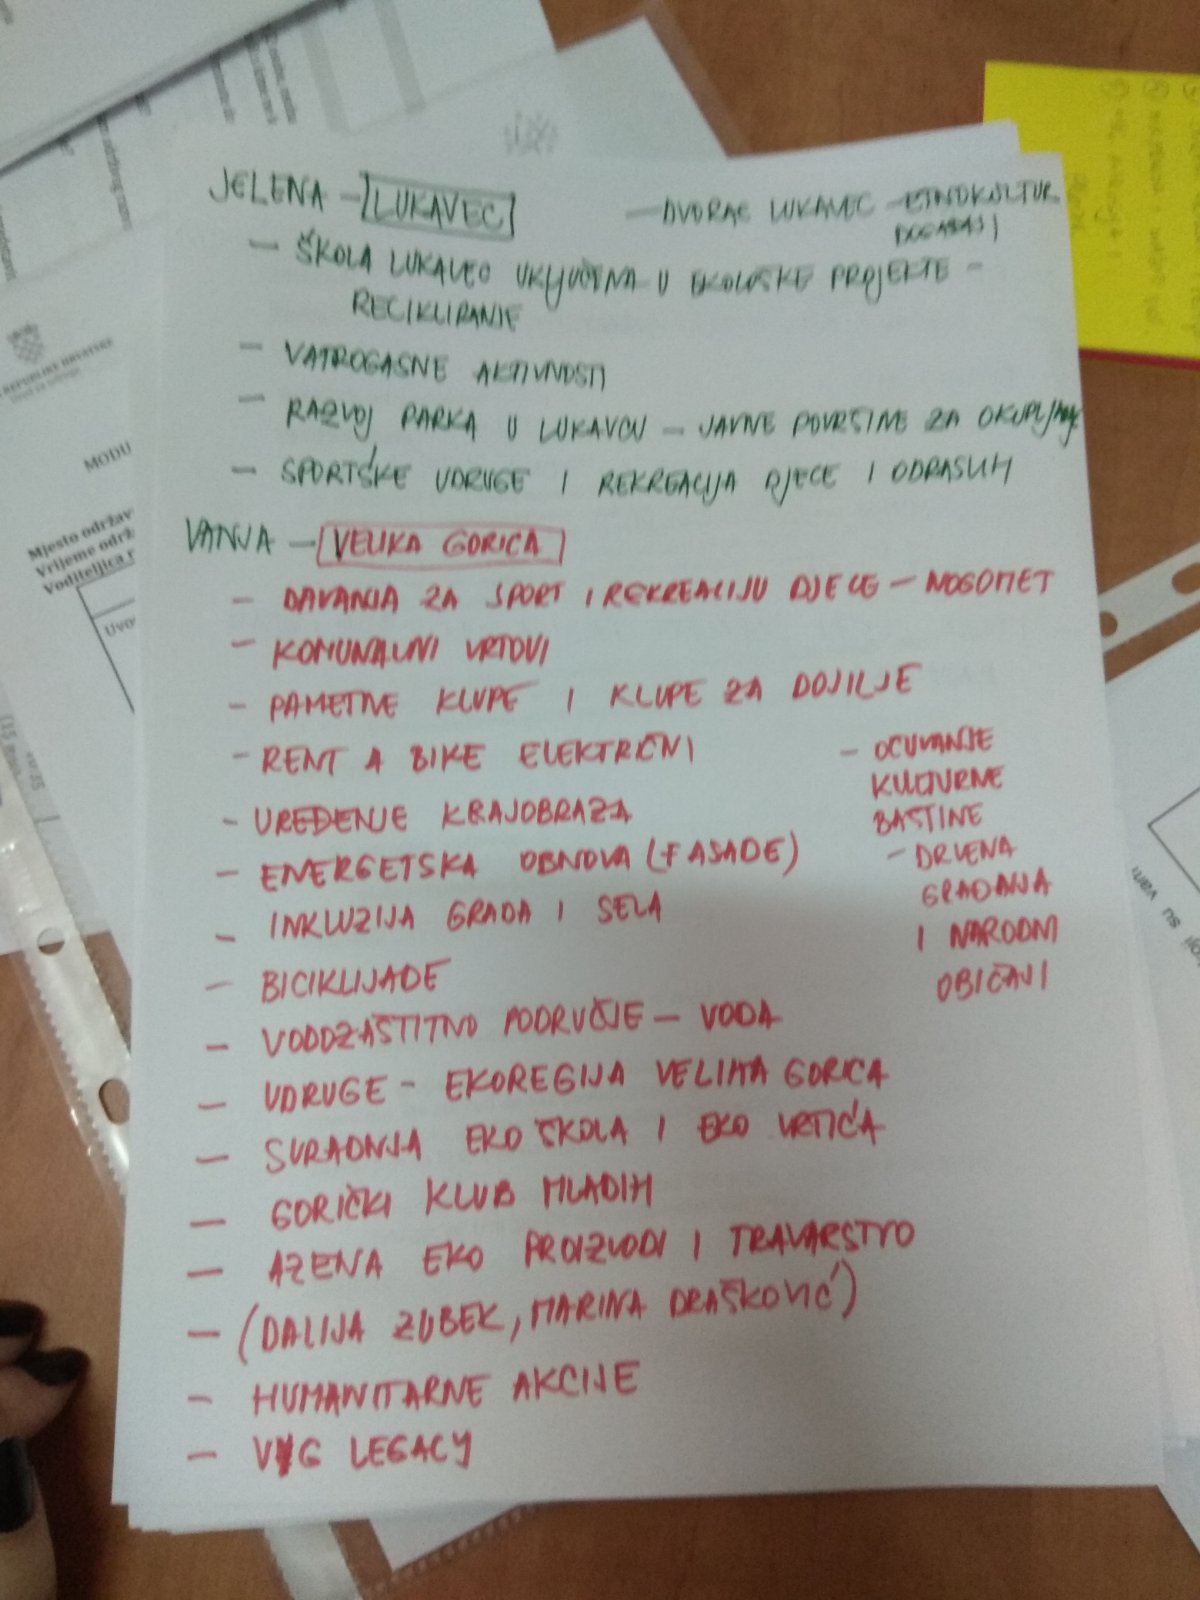 JELENA – LUKAVEC
– DVORAC LUKAVEC – ETNOKULTUR
DOGAĐAJI
– ŠKOLA LUKAVEC UKLJUČENA U EKOLOŠKE PROJEKTE –
RECIKLIRANJE
– VATROGASNE AKTIVNOSTI
– RAZVOJ PARKA U LUKAVCU – JAVNE POVRŠINE ZA OKUPLJANJE
– SPORTSKE UDRUGE I REKREACIJA DJECE I ODRASLIH
VANJA – VELIKA GORICA
– DAVANJA ZA SPORT I REKREACIJU DJECE – NOGOMET
– KOMUNALNI VRTOVI
– PAMETNE KLUPE I KLUPE ZA DOJILJE
– RENT A BIKE ELEKTRIČNI
– UREĐENJE KRAJOBRAZA
– ENERGETSKA OBNOVA (FASADE)
– INKLUZIJA GRADA I SELA
– BICIKLIJADE
– VODOZAŠTITNO PODRUČJE – VODA
– UDRUGE – EKOREGIJA VELIKA GORICA
– SURADNJA EKO ŠKOLA I EKO VRTIĆA
– GORIČKI KLUB MLADIH
– AZENA EKO PROIZVODI I TRAVARSTVO
– (DALIJA ZUBEK, MARINA DRAŠKOVIĆ)
– HUMANITARNE AKCIJE
– VG LEGACY
– OČUVANJE
KULTURNE
BAŠTINE
– DRVENA
GRAĐANJA
I NARODNI
OBIČAJI
REPUBLIKE HRVATSKE
MODU
Mjesto održav
Vrijeme održ
Voditeljica r
Uvo
su vam